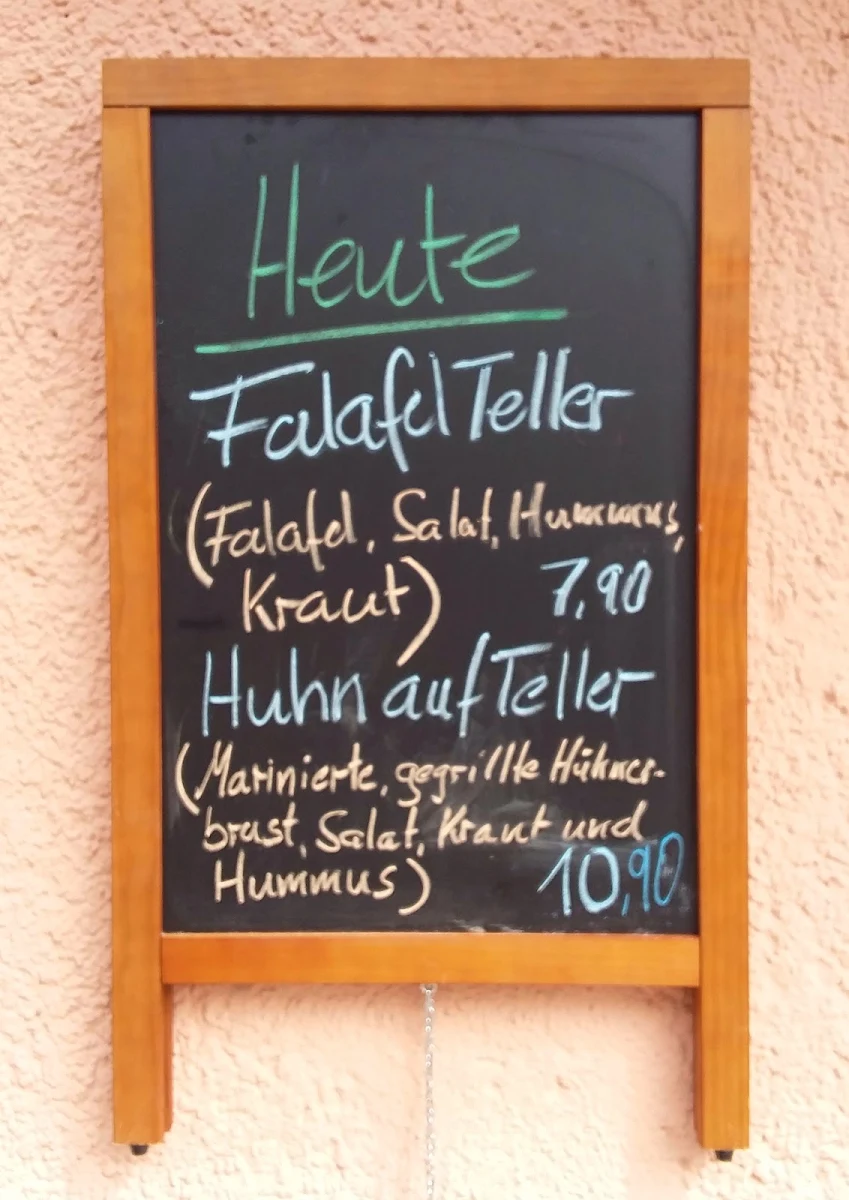 Heute
Falafel Teller
(Falafel, Salat, Hummus,
Kraut) 7,90
Huhn auf Teller
(Marinierte, gegrillte Hühner-
brust, Salat, Kraut und
Hummus) 10,90